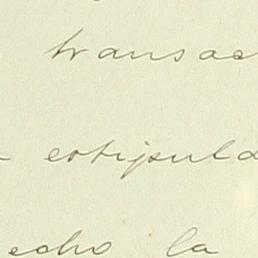 transac
estipula
echo la